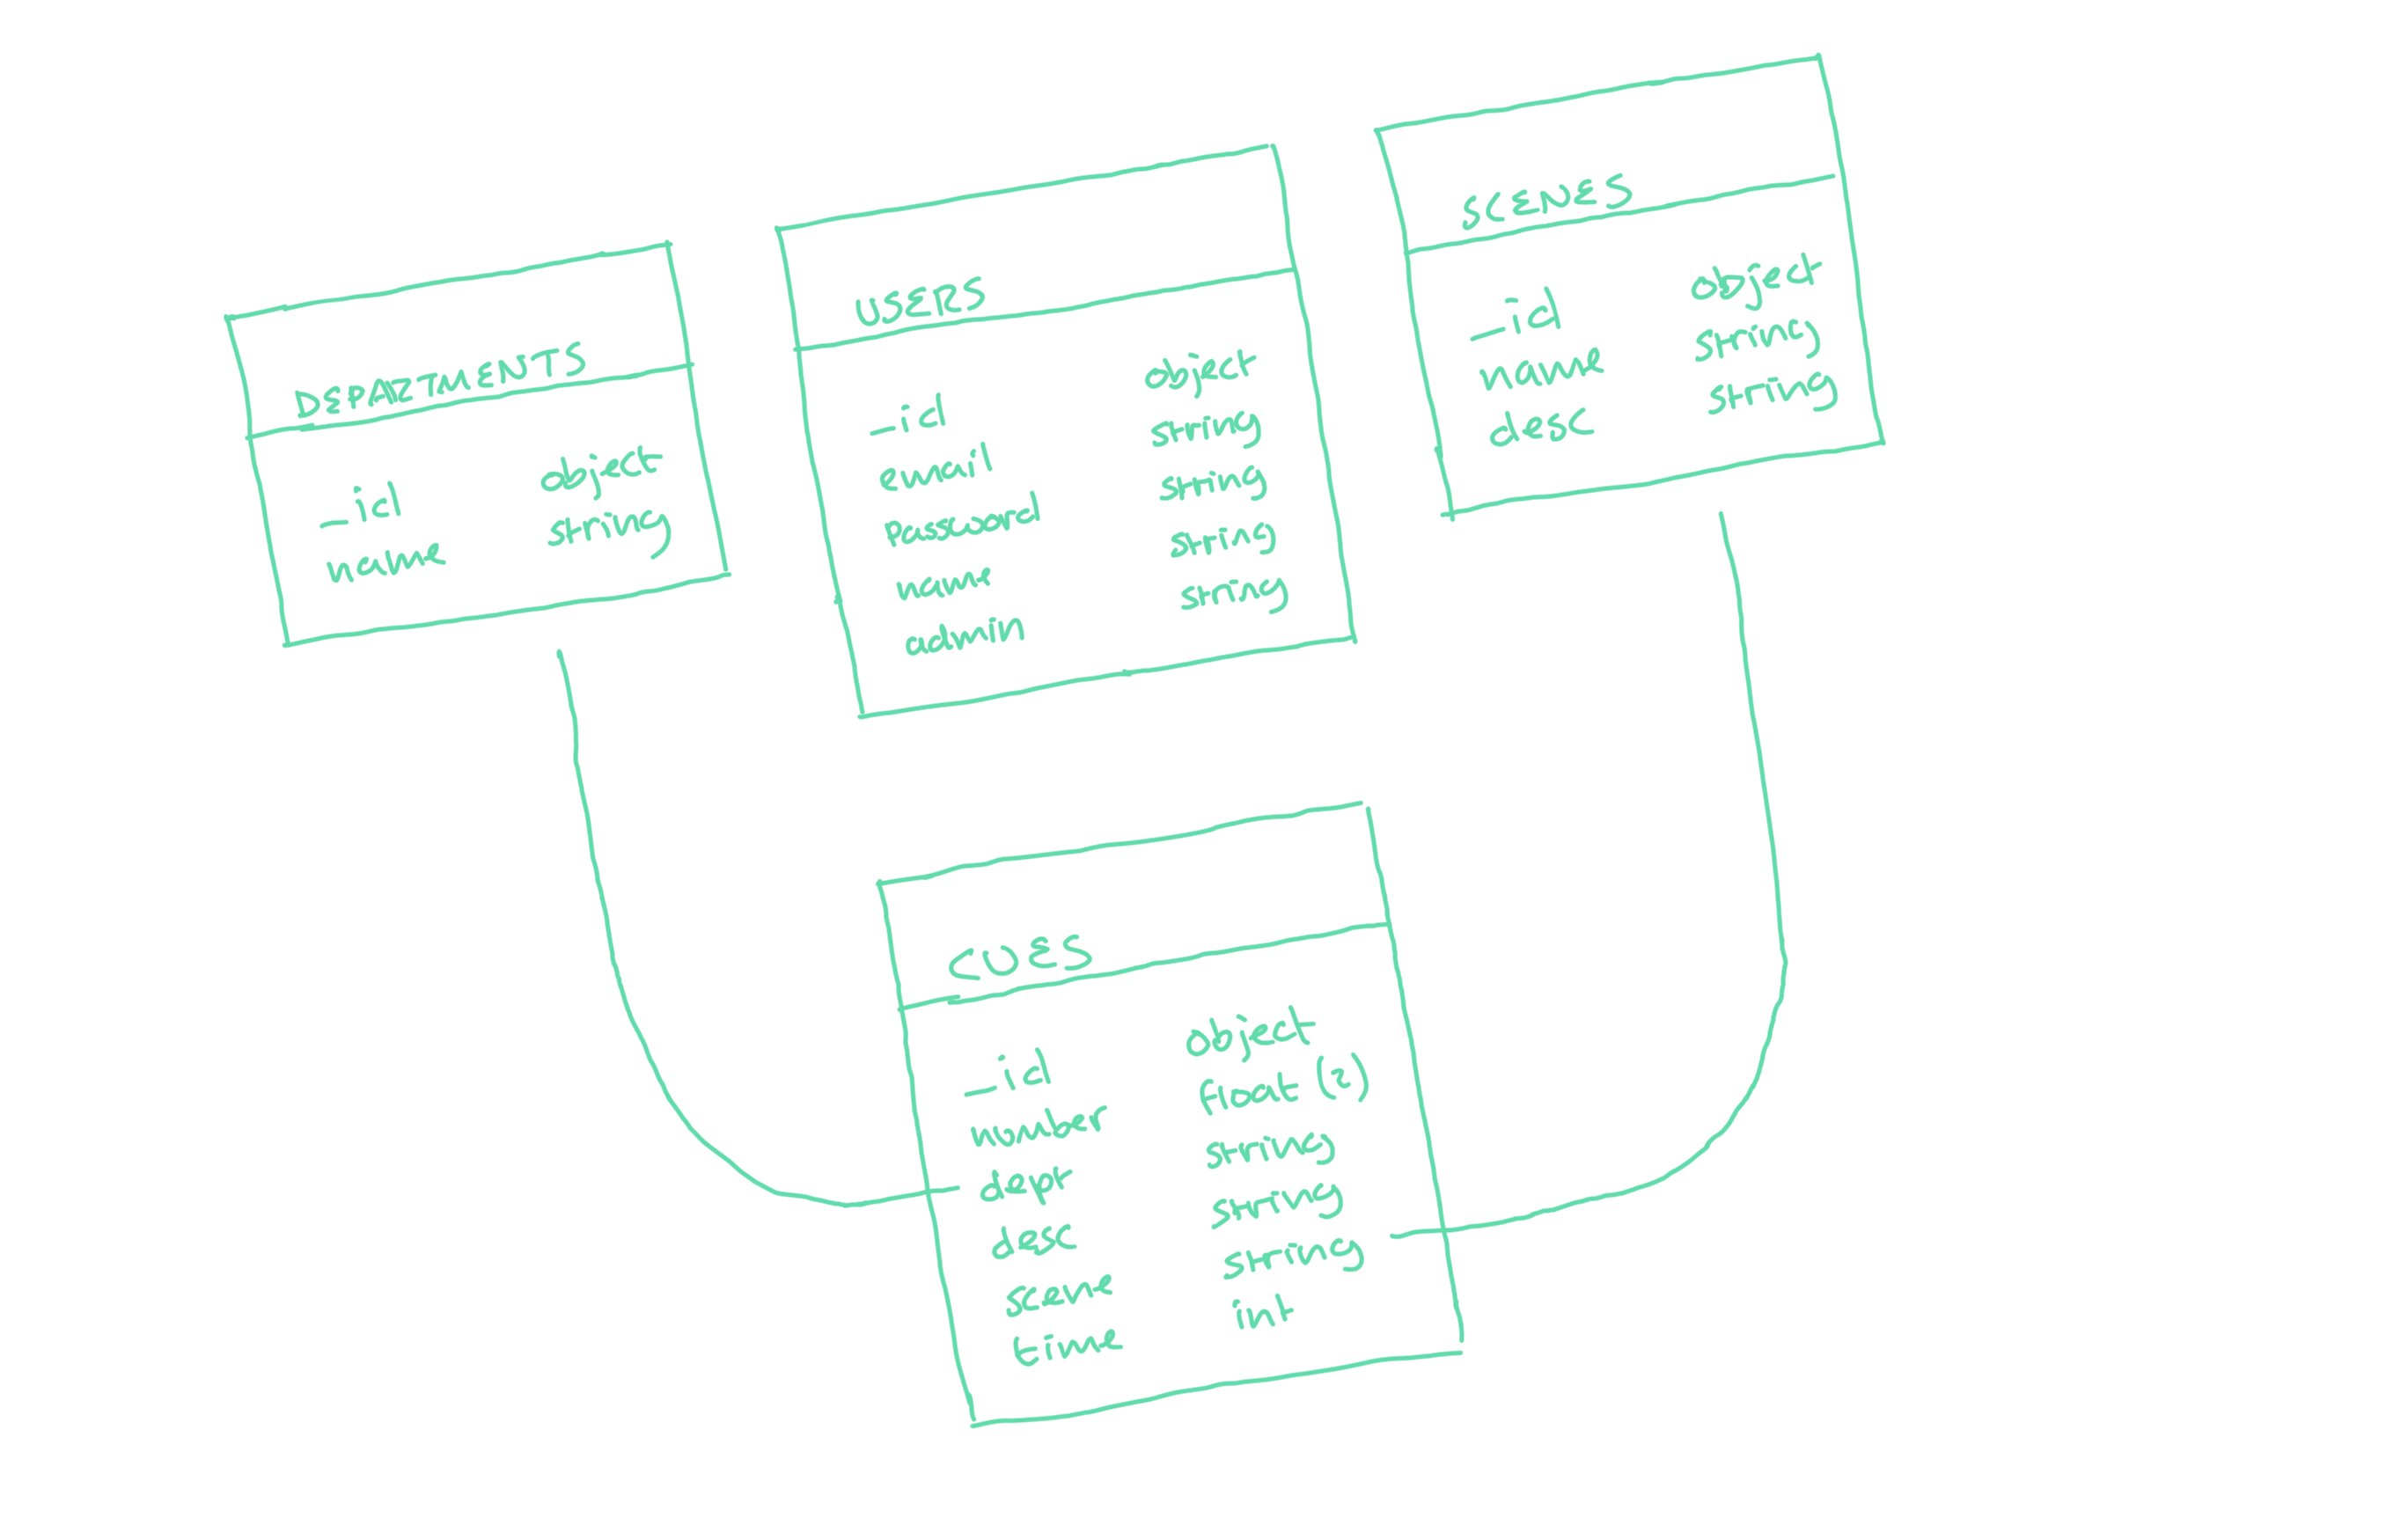 DEPARTMENTS
_id object
name string
USERS
_id object
email string
password string
name string
admin string
SCENES
_id object
name string
desc string
CUES
_id object
number float (2)
dept string
desc string
scene string
time int